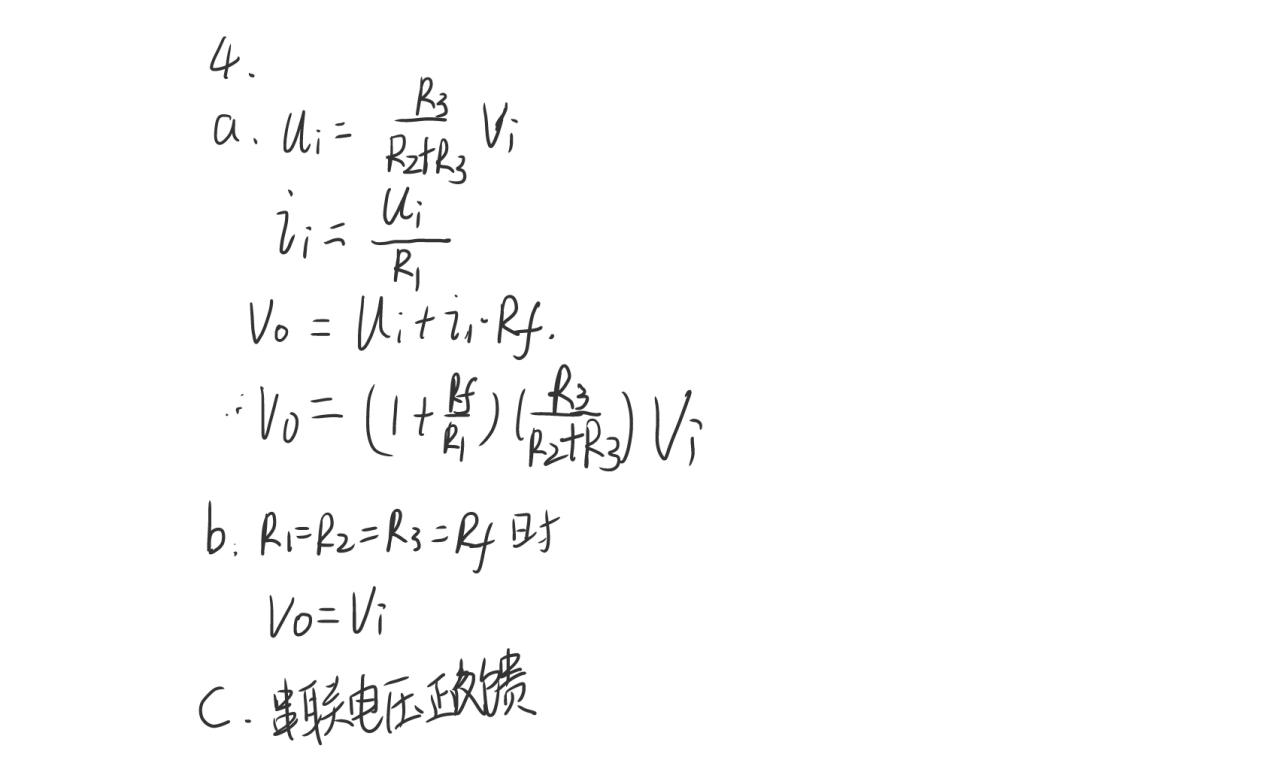 4.
a. Ui = R3/(R2+R3) Vi
ii = Ui/R1
Vo = Ui + i1·Rf.
∴ Vo = (1 + Rf/R1)(R3/(R2+R3)) Vi
b. R1=R2=R3=Rf 时
Vo=Vi
C. 串联电压正反馈